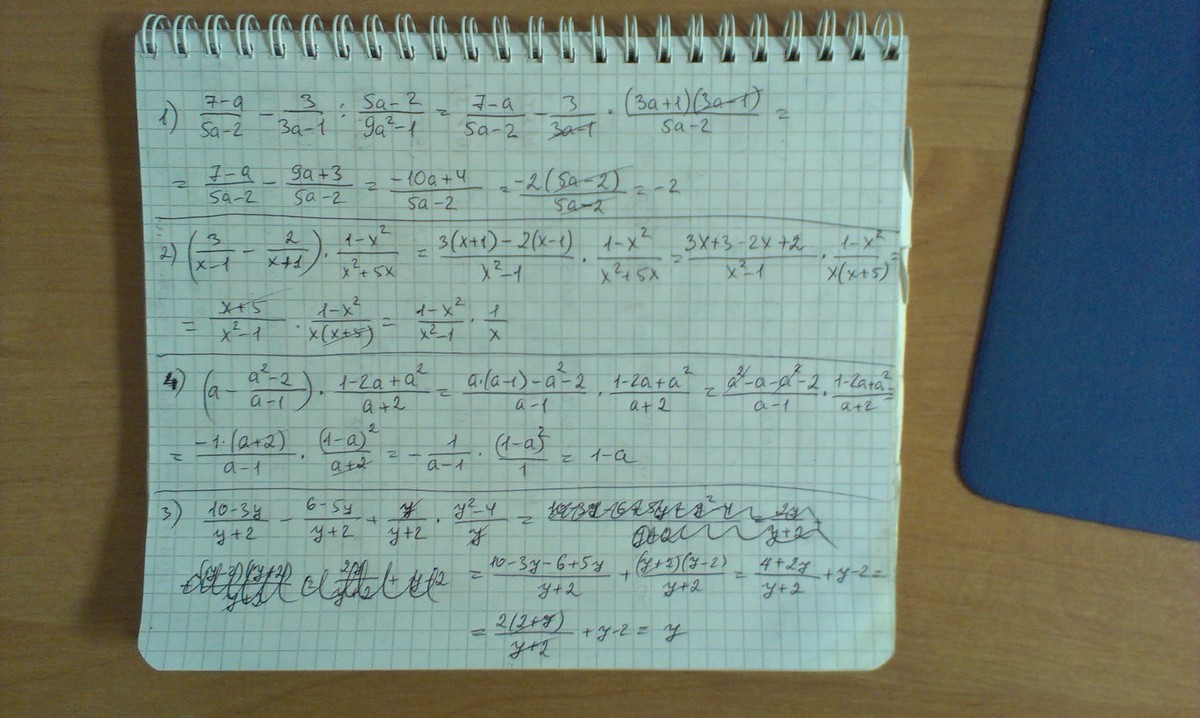 1) (7-a)/(5a-2) - 3/(3a-1) : (5a-2)/(9a²-1) = (7-a)/(5a-2) - 3/(3a-1) · (3a+1)(3a-1)/(5a-2) =
= (7-a)/(5a-2) - (9a+3)/(5a-2) = (-10a+4)/(5a-2) = -2(5a-2)/(5a-2) = -2
2) (3/(x-1) - 2/(x+1)) · (1-x²)/(x²+5x) = (3(x+1)-2(x-1))/(x²-1) · (1-x²)/(x²+5x) = (3x+3-2x+2)/(x²-1) · (1-x²)/(x(x+5)) =
= (x+5)/(x²-1) · (1-x²)/(x(x+5)) = (1-x²)/(x²-1) · 1/x
4) (a - (a²-2)/(a-1)) · (1-2a+a²)/(a+2) = (a·(a-1)-a²-2)/(a-1) · (1-2a+a²)/(a+2) = (a²-a-a²-2)/(a-1) · (1-2a+a²)/(a+2) =
= -1·(a+2)/(a-1) · (1-a)²/(a+2) = - 1/(a-1) · (1-a)²/1 = 1-a
3) (10-3y)/(y+2) - (6-5y)/(y+2) + y/(y+2) · (y²-4)/y =
= (10-3y-6+5y)/(y+2) + (y+2)(y-2)/(y+2) = (4+2y)/(y+2) + y-2 =
= 2(2+y)/(y+2) + y-2 = y